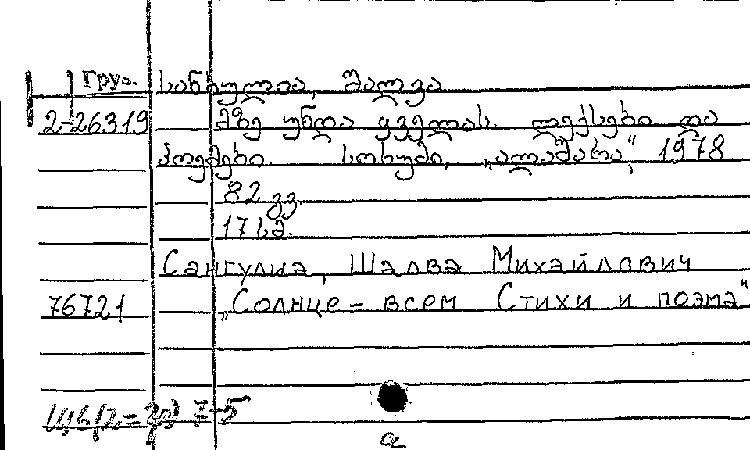 Груз. სანგულია, შალვა
2-26319 მზე უნდა ყველას. ლექსები და
პოემები. სოხუმი, „ალაშარა“, 1978
82 გვ.
17 სმ.
Сангулиа, Шалва Михайлович
76721 „Солнце – всем Стихи и поэма“
7-5
а